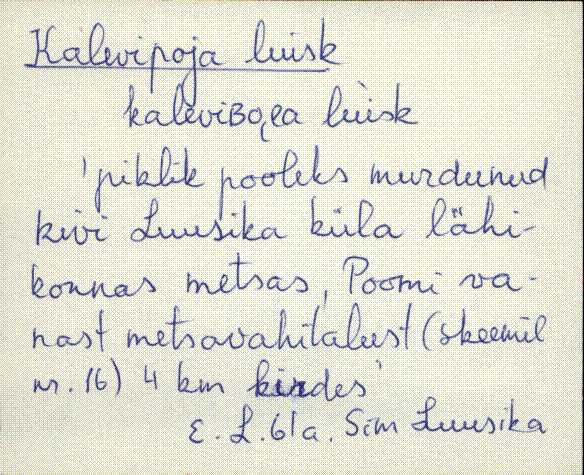 Kalevipoja luisk
kaleviBoea lùisk
'piklik pooleks murdunud
kivi Luusika küla lähi-
konnas metsas, Poomi va-
nast metsavahitalust (skeemil
nr. 16) 4 km kirdes'
E. L. 61a. Sim Luusika